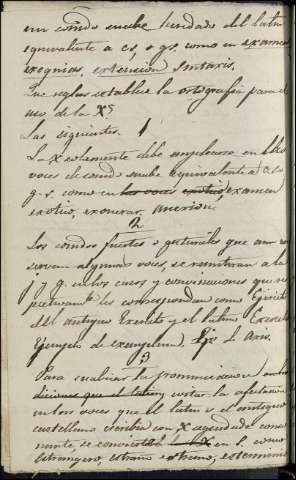 un sonido suabe heredado del latin
equivalente a cs, o gs, como en examen
exequias, extension sintaxis.
Que reglas establece la ortografia para el
uso de la X?
Las siguientes. 1
La X solamente debe emplearse en
voces de sonido suabe equivalente a cs o
g s. como en las voces exotico, examen
exotico, exonerar, anexion.
2
Los sonidos fuertes o guturales que aun con
servan algunas voces, se remitiran a la
j y g. en los casos y convinaciones que res
pectivamte les correspondan como Ejercito
del antiguo Exercito y el latino Exercitus
Ejemplo de exemplum. Eje de Axis.
3
Para suabizar la pronunciacion
evitar la afectacion
en las voces que el latin o el antiguo
castellano escribia con X seguida de conso
nante, se convierte la X en s. como
estrangero, estraño estremo, esterminio